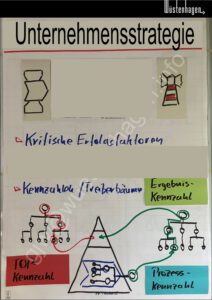 Wüstenhagen
Unternehmensstrategie
Kritische Erfolgsfaktoren
Kennzahlen / Treiberbäume
Ergebnis-
Kennzahl
TOP
Kennzahl
Prozess-
Kennzahl